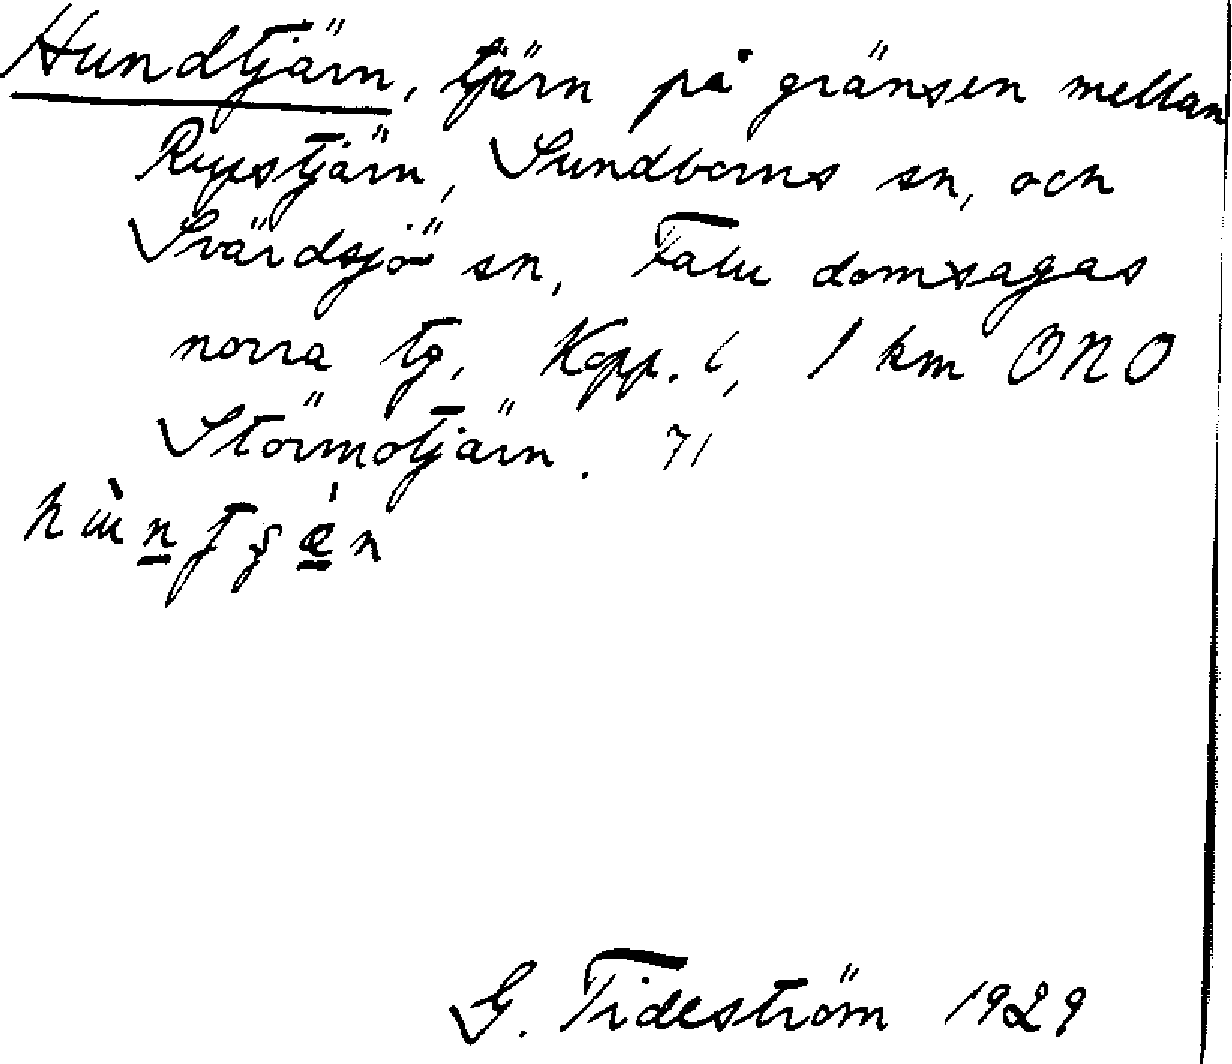 Hundtjärn, tjärn på gränsen mellan
Rupstjärn, Sundborns sn, och
Svärdsjö sn, Falu domsagas
norra tg, Kopp. l, 1 km ONO
Störmotjärn. 71
G. Tideström 1929